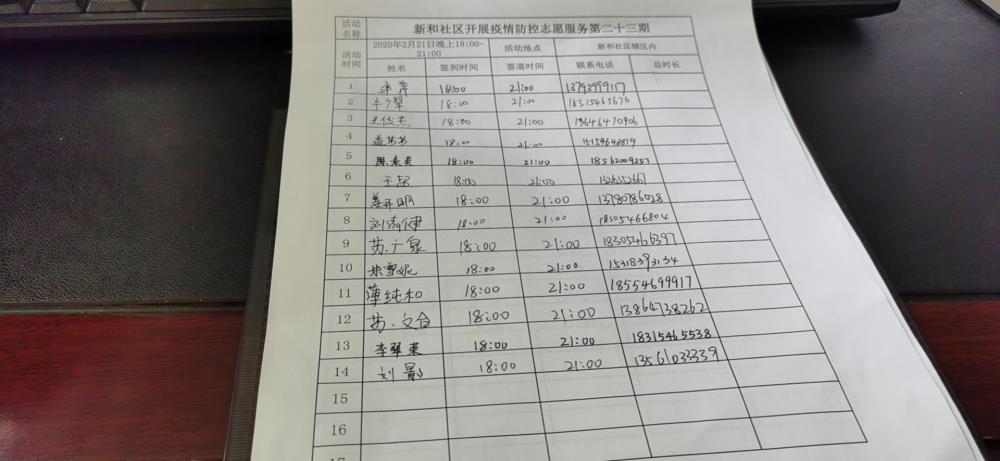 活动名称 新和社区开展疫情防控志愿服务第二十三期
活动时间 2020年2月21日晚上18:00-21:00 活动地点 新和社区辖区内
姓名 签到时间 签退时间 联系电话 总时长
1 18:00 21:00
2 18:00 21:00 18315465676
3 18:00 21:00 13646470906
4 18:00 21:00
5 陈素英 18:00 21:00 18562009257
6 18:00 21:00
7 姜开明 18:00 21:00 13780786028
8 刘清健 18:00 21:00 18305466804
9 苏广泉 18:00 21:00 18305466397
10 朱雪妮 18:00 21:00 15318393134
11 薄纯和 18:00 21:00 18554699917
12 苏文合 18:00 21:00 13864738262
13 李翠英 18:00 21:00 18315465538
14 刘影 18:00 21:00 13561033339
15
16
17